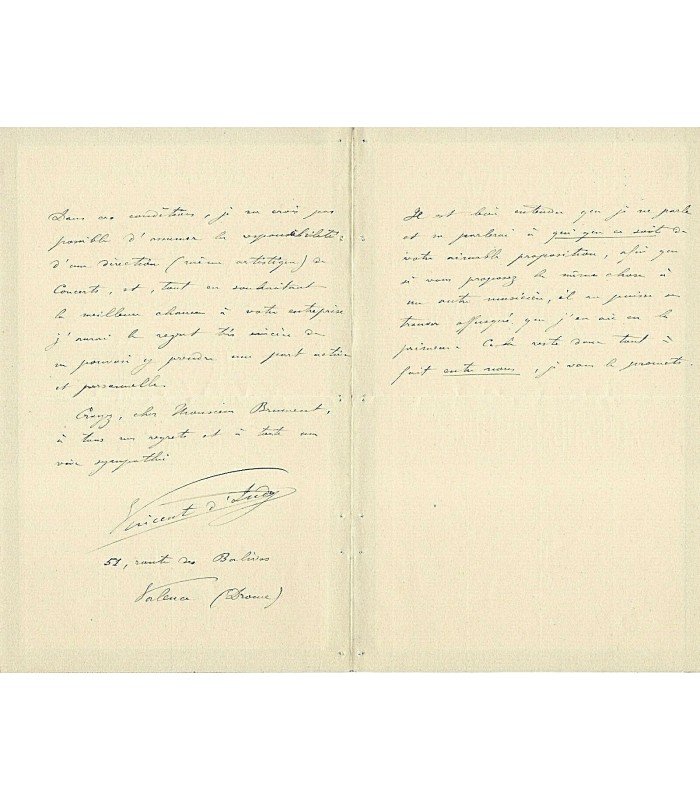 Dans ces conditions, je ne crois pas
possible d'assumer la responsabilité
d'une direction (même artistique) de
Concerts, et, tout en souhaitant
la meilleure chance à votre entreprise
j'aurai le regret très sincère de
ne pouvoir y prendre une part active
et personnelle.
Croyez, cher Monsieur
à tous mes regrets et à toute ma
vive sympathie
Vincent d'Indy
51, route de
Valence (Drome)
Il est bien entendu que je ne parle
et ne parlerai à qui que ce soit de
votre aimable proposition, afin que
si vous proposez la même chose à
un autre musicien, il ne puisse se
trouver offusqué que j'en aie eu la
primeur. Cela reste donc tout à
fait entre nous, je vous le promets.